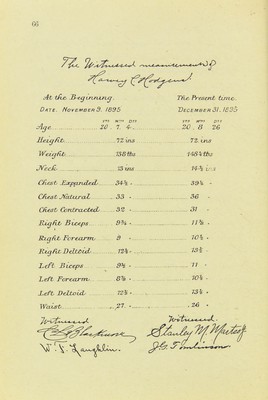 66
The Witnessed measurements of
Harvey C Hodgens
At the Beginning. The Present time.
DATE. NOVEMBER 9. 1895 DECEMBER 31. 1895
YRS MOS DYS YRS MOS DYS
Age 20 . 7 . 4 . 20 . 8 26
Height. 72 ins 72 ins
Weight. 138 lbs 148¼ lbs
Neck 13 ins 14½ ins
Chest Expanded. 34½ . 39½ .
Chest Natural 33 . 36 .
Chest Contracted 32 . 31 .
Right Biceps 9¾ . 11¾ .
Right Forearm 9 . 10½ .
Right Deltoid 12¾ . 13½ .
Left Biceps 9¼ . 11 .
Left Forearm 8¾ . 10¼ .
Left Deltoid 12½ . 13¼ .
Waist 27 . 26 .
Witnessed Witnessed.
Stanley M.
W. J. Laughlin. J G Tomlinson